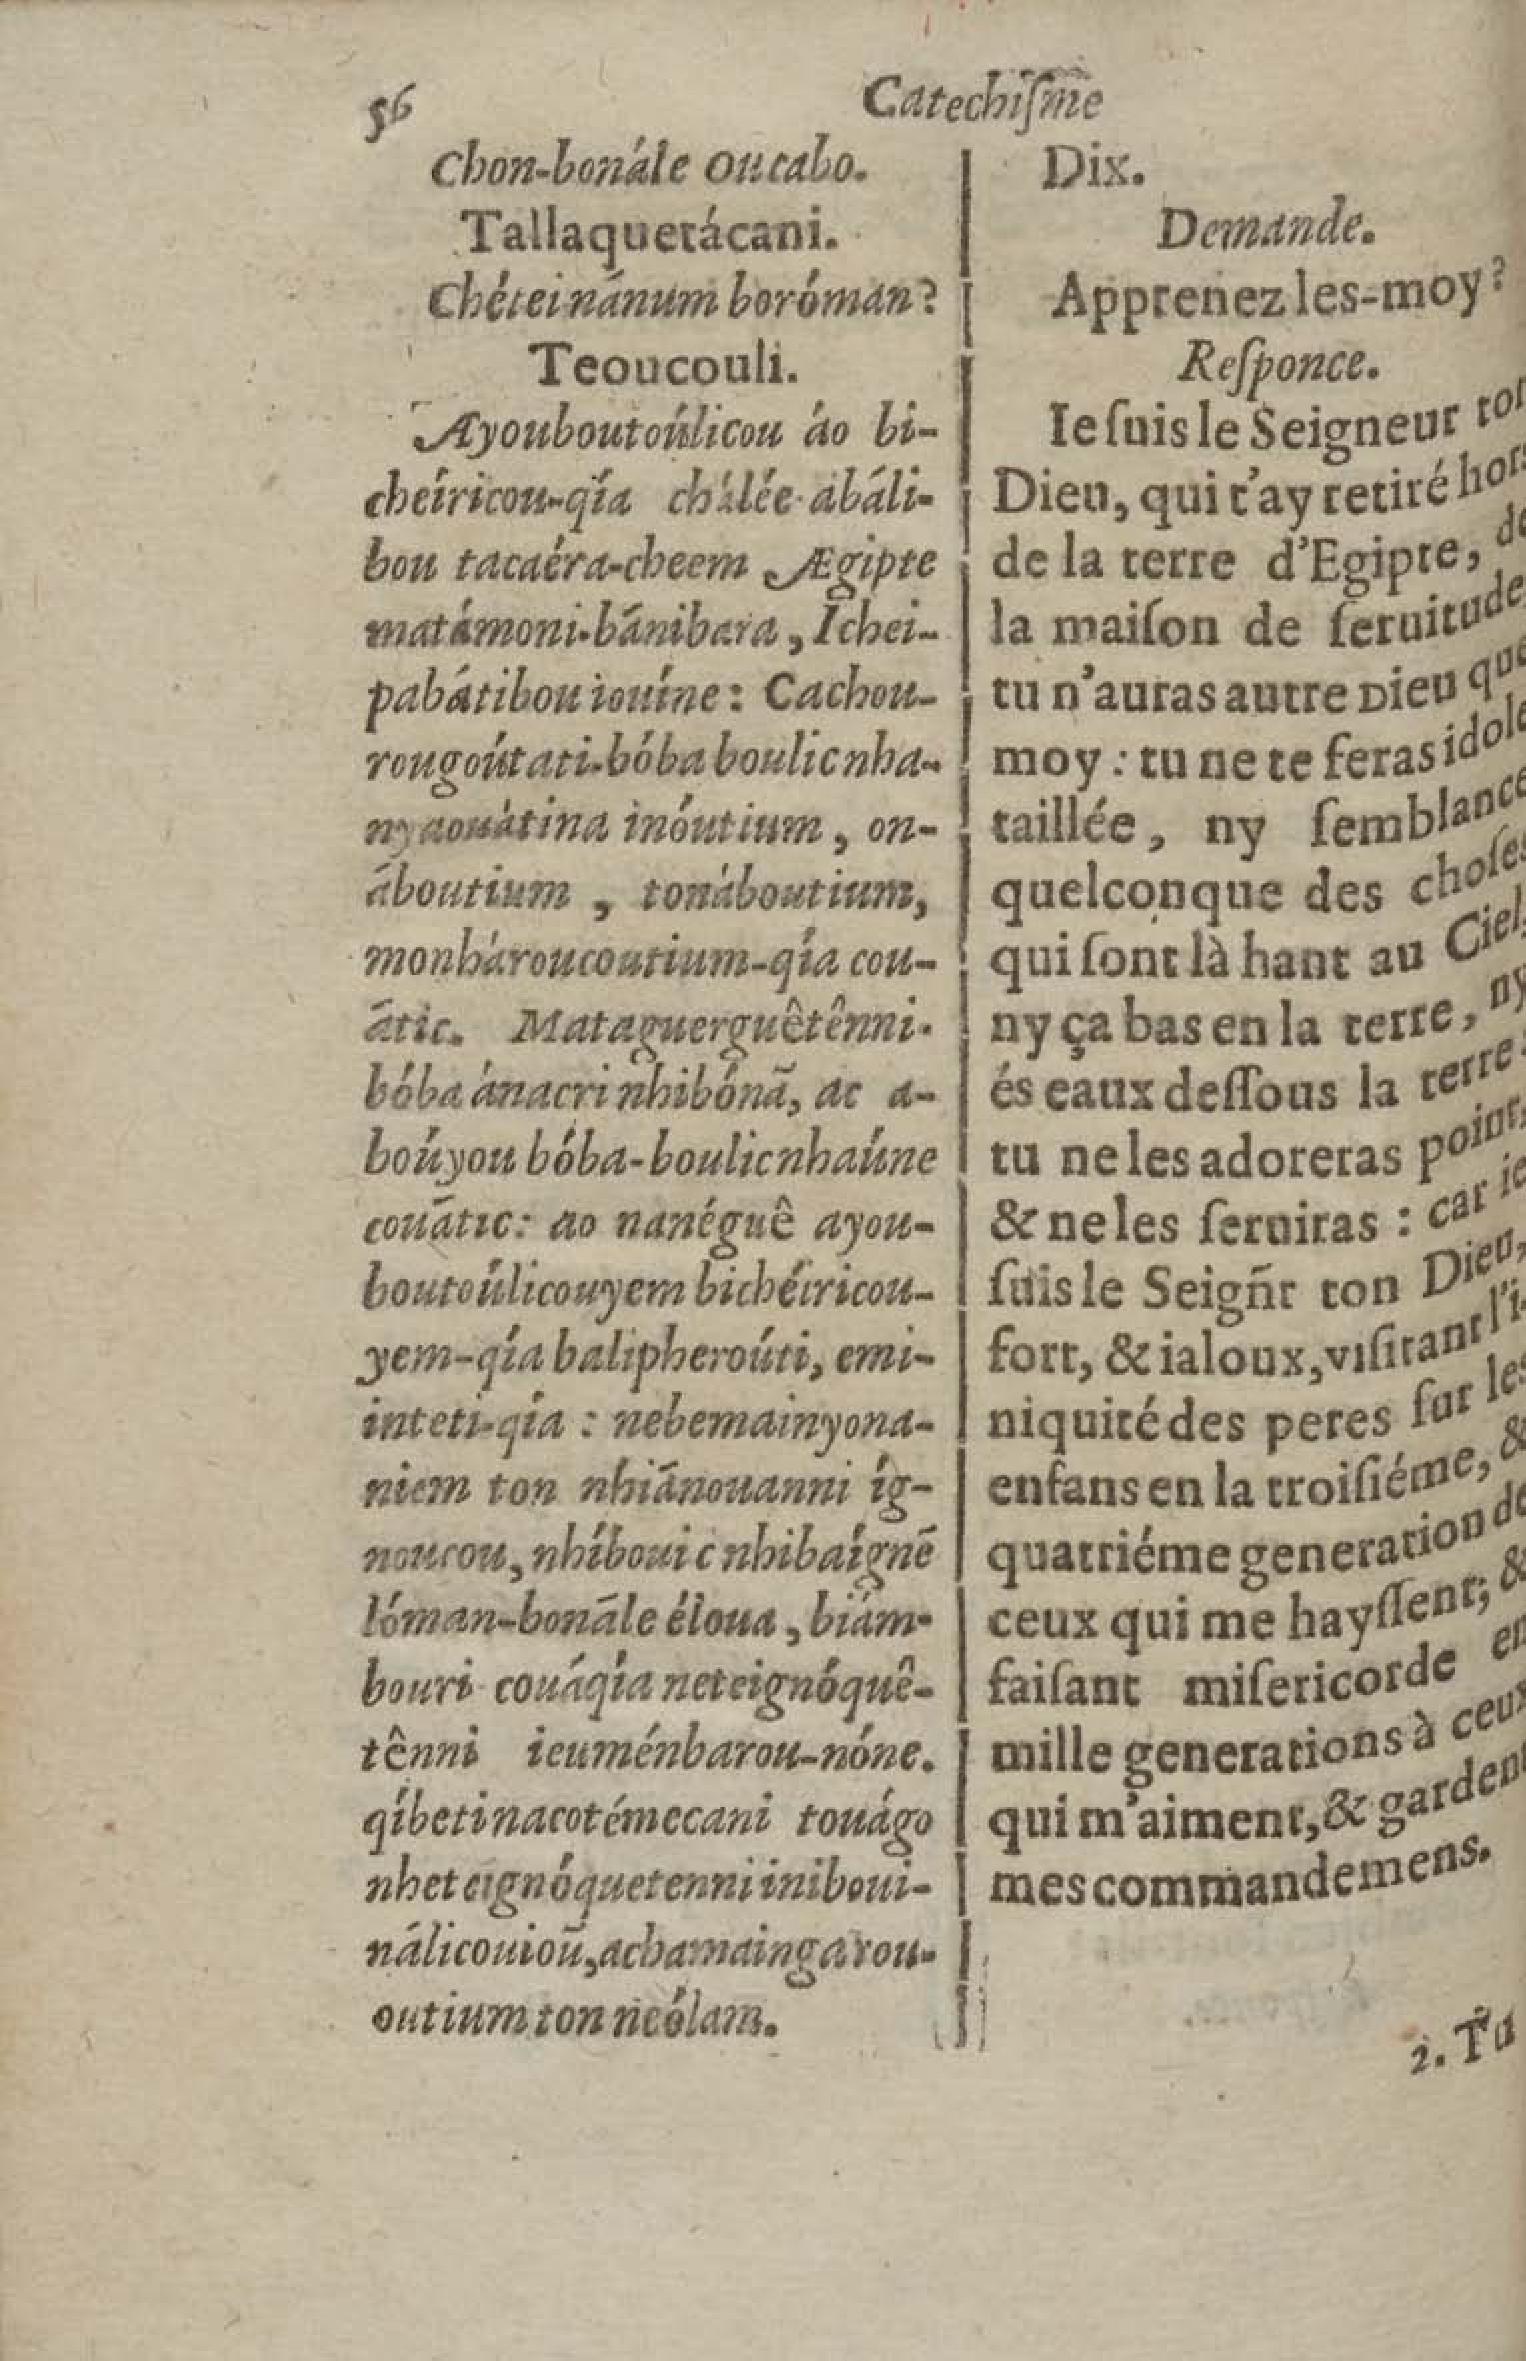 56
Catechiſme
Chon-bonále oucabo.
Tallaquetácani.
Chéteinánum boróman?
Teoucouli.
Æyouboutoúlicou áo bi-
cheíricou-qía chálée abáli-
bou tacaéra-cheem Ægipte
matámoni-bãnibara, Ichei-
pabátibou iouíne: Cachou-
rougoútati-bóba boulicnha-
nyaouàtina inóutium, on-
áboutium, tonàboutium,
monhàroucoutium-qía cou-
ãtic. Mataguerguêtênni-
bóba ánacri nhibónã, ac a-
boúyou bóba-boulicnhaúne
couãtic: ao nanéguê ayou-
boutoúlicouyem bichéiricou-
yem-qía balipheroúti, emi-
inteti-qía: nebemainyona-
niem ton nhiãnouanni íg-
noucou, nhíbouic nhibaígnẽ
lóman-bonãle éloua, biám-
bouri couáqía neteignóquê-
tênni ieuménbarou-nóne.
qíbetinacotémecani touágo
nheteignóquetenni iniboui-
nálicouioũ, achamaingarou-
outium ton neólam.
Dix.
Demande.
Apprenez les-moy?
Reſponce.
Ie ſuis le Seigneur ton
Dieu, qui t'ay retiré hors
de la terre d'Egipte, de
la maiſon de ſeruitude,
tu n'auras autre Dieu que
moy: tu ne te feras idole
taillée, ny ſemblance
quelconque des choſes
qui ſont là hant au Ciel,
ny ça bas en la terre, ny
és eaux deſſous la terre:
tu ne les adoreras point,
& ne les ſeruiras: car ie
ſuis le Seigñr ton Dieu,
fort, & ialoux, viſitant l'i-
niquité des peres ſur les
enfans en la troiſiéme, &
quatriéme generation de
ceux qui me hayſſent; &
faiſant miſericorde en
mille generations à ceux
qui m'aiment, & gardent
mes commandemens.
2. Tu